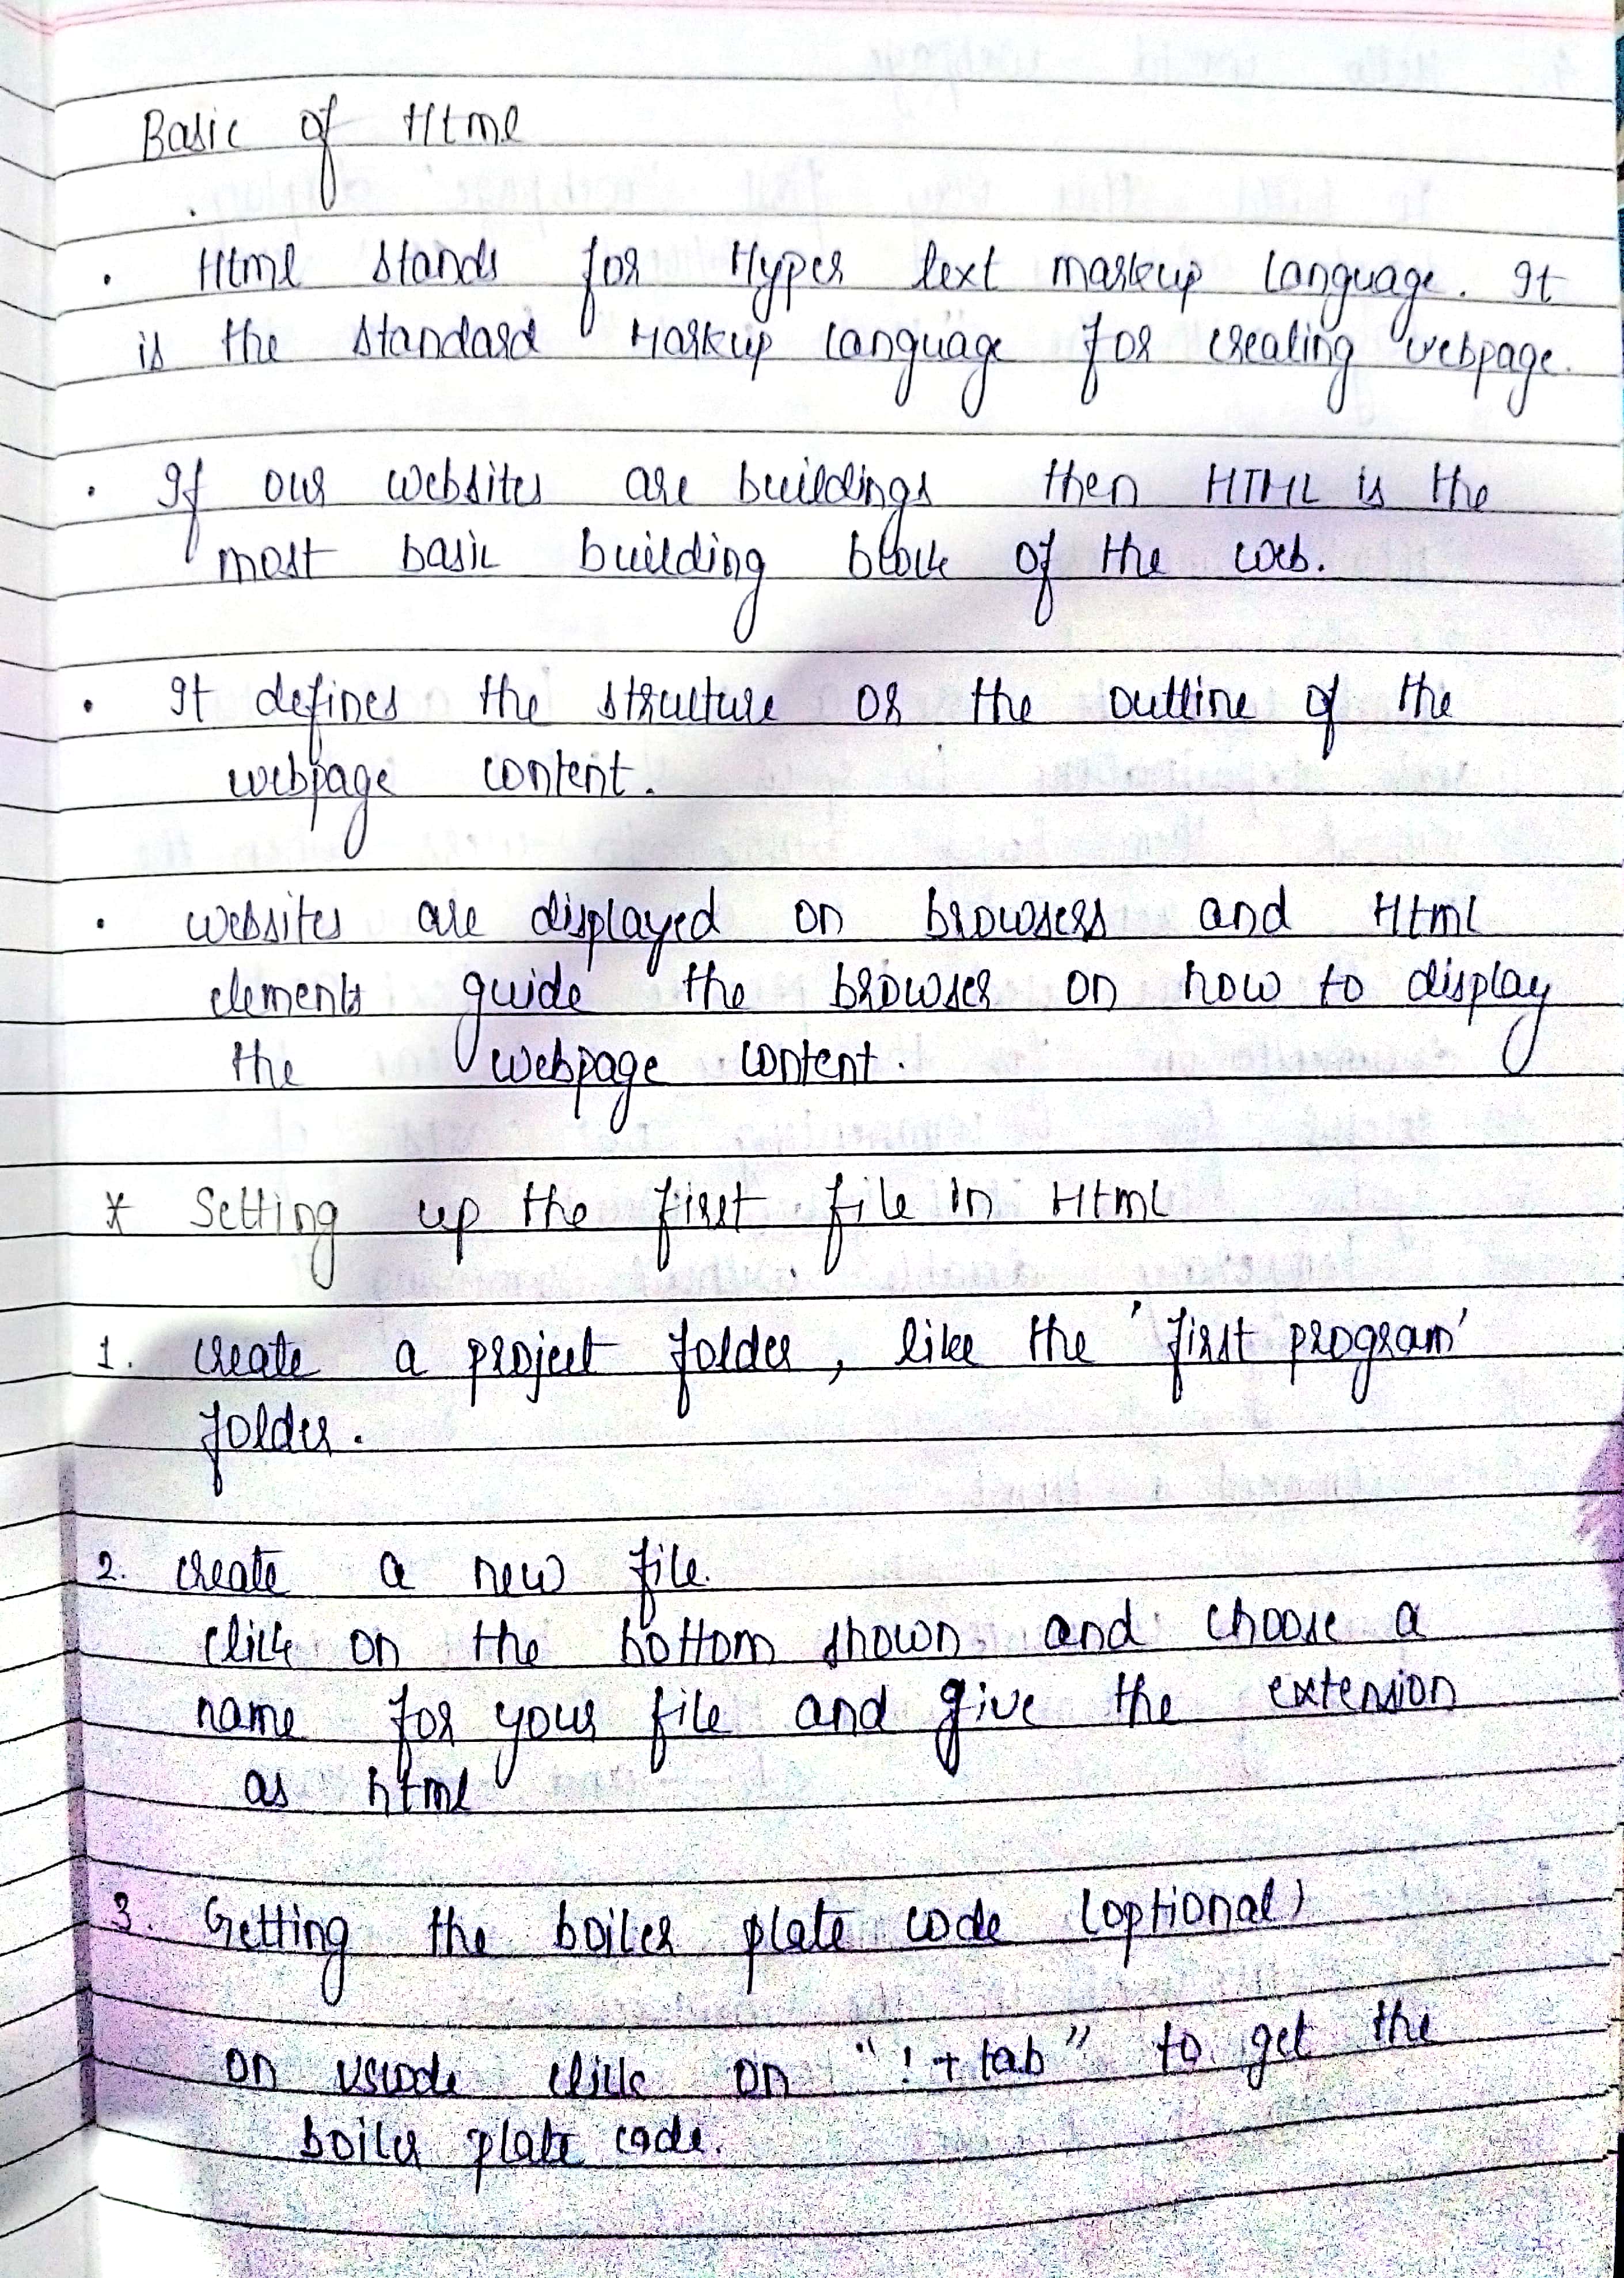 Basic of Html
. Html stands for Hyper text markup language. It
is the standard Markup language for creating webpage.
. If our websites are buildings then HTML is the
most basic building block of the web.
. It defines the structure or the outline of the
webpage content.
. websites are displayed on browsers and Html
elements guide the browser on how to display
the webpage content.
* Setting up the first file in Html
1. create a project folder, like the 'first program'
folder.
2. create a new file.
click on the bottom shown and choose a
name for your file and give the extension
as html
3. Getting the boiler plate code (optional)
on vscode click on "! + tab" to get the
boiler plate code.